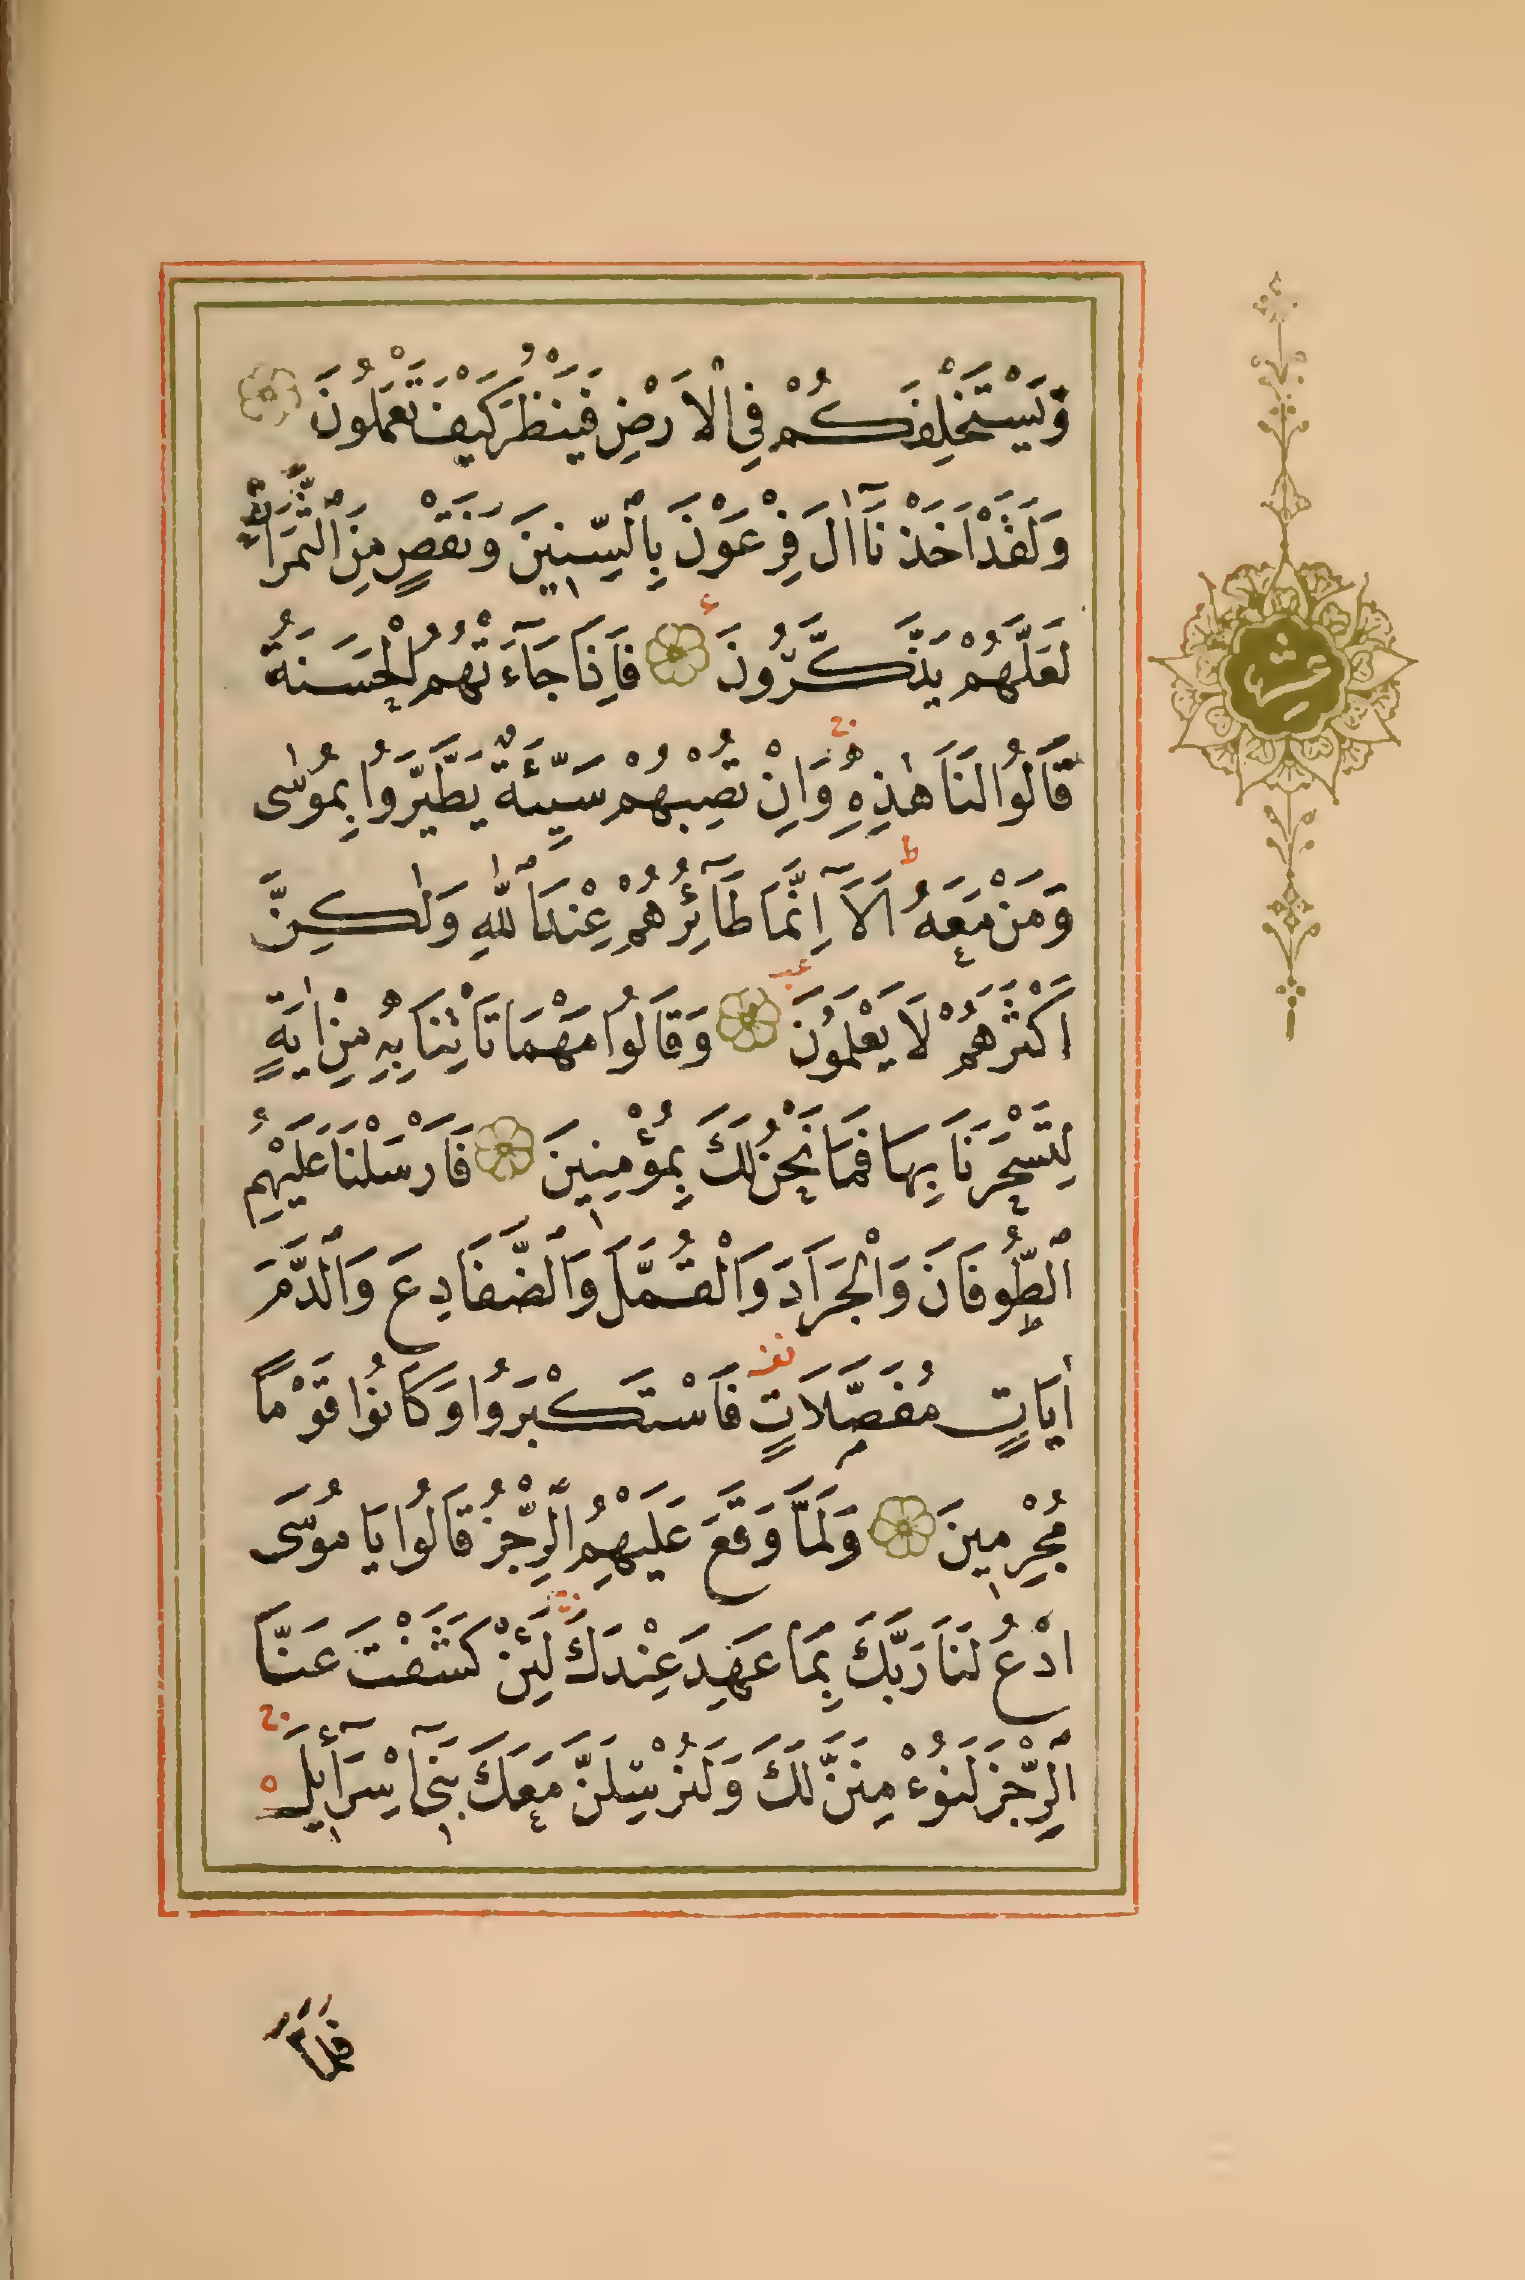 وَيَسْتَخْلِفَكُمْ فِي الْاَرْضِ فَيَنْظُرَ كَيْفَ تَعْمَلُونَ
وَلَقَدْ اَخَذْنَٓا اٰلَ فِرْعَوْنَ بِالسِّنِينَ وَنَقْصٍ مِنَ الثَّمَرَاتِ
لَعَلَّهُمْ يَذَّكَّرُونَ فَاِذَا جَٓاءَتْهُمُ الْحَسَنَةُ
قَالُوا لَنَا هٰذِهِ وَاِنْ تُصِبْهُمْ سَيِّئَةٌ يَطَّيَّرُوا بِمُوسٰى
وَمَنْ مَعَهُ اَلَٓا اِنَّمَا طَٓائِرُهُمْ عِنْدَ اللّٰهِ وَلٰكِنَّ
اَكْثَرَهُمْ لَا يَعْلَمُونَ وَقَالُوا مَهْمَا تَاْتِنَا بِهِ مِنْ اٰيَةٍ
لِتَسْحَرَنَا بِهَا فَمَا نَحْنُ لَكَ بِمُؤْمِنِينَ فَاَرْسَلْنَا عَلَيْهِمُ
الطُّوفَانَ وَالْجَرَادَ وَالْقُمَّلَ وَالضَّفَادِعَ وَالدَّمَ
اٰيَاتٍ مُفَصَّلَاتٍ فَاسْتَكْبَرُوا وَكَانُوا قَوْمًا
مُجْرِمِينَ وَلَمَّا وَقَعَ عَلَيْهِمُ الرِّجْزُ قَالُوا يَا مُوسَى
ادْعُ لَنَا رَبَّكَ بِمَا عَهِدَ عِنْدَكَ لَئِنْ كَشَفْتَ عَنَّا
الرِّجْزَ لَنُؤْمِنَنَّ لَكَ وَلَنُرْسِلَنَّ مَعَكَ بَنِٓي اِسْرَٓائِيلَ
عشر
فَلَمَّا